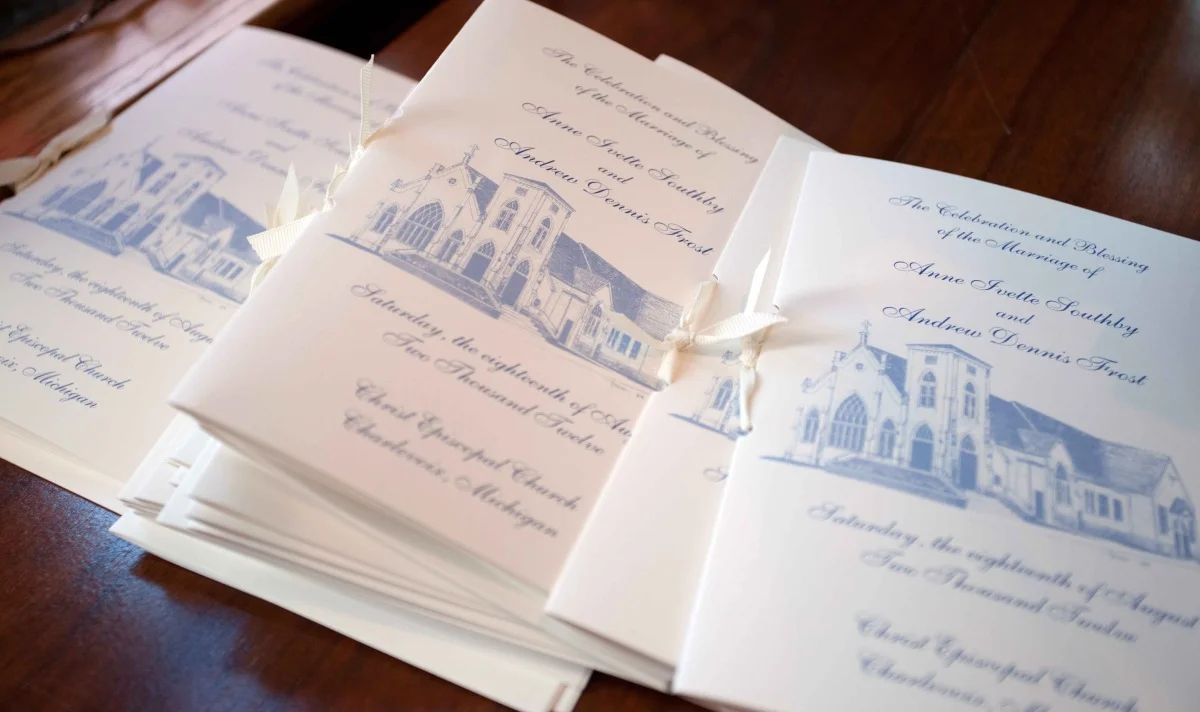 The Celebration and
of the Marriage
Anne Ivette
and
Andrew Denn
Saturday, the eighteenth of Augu
Two Thousand Twelve
st Episcopal Church
oix, Michigan
The Celebration and Blessing
of the Marriage of
Anne Ivette Southby
and
Andrew Dennis Frost
Saturday, the eighteenth of Au
Two Thousand Twelve
Christ Episcopal Church
Charlevoix, Michigan
The Celebration and Blessing
of the Marriage of
Anne Ivette Southby
and
Andrew Dennis Frost
Saturday, the eighteenth of August
Two Thousand Twelve
Christ Episcopal Church
Charlevoix, Mi